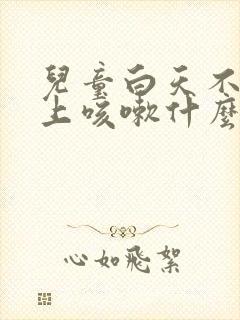 兒童白天不
上咳嗽什麼
心如飛絮